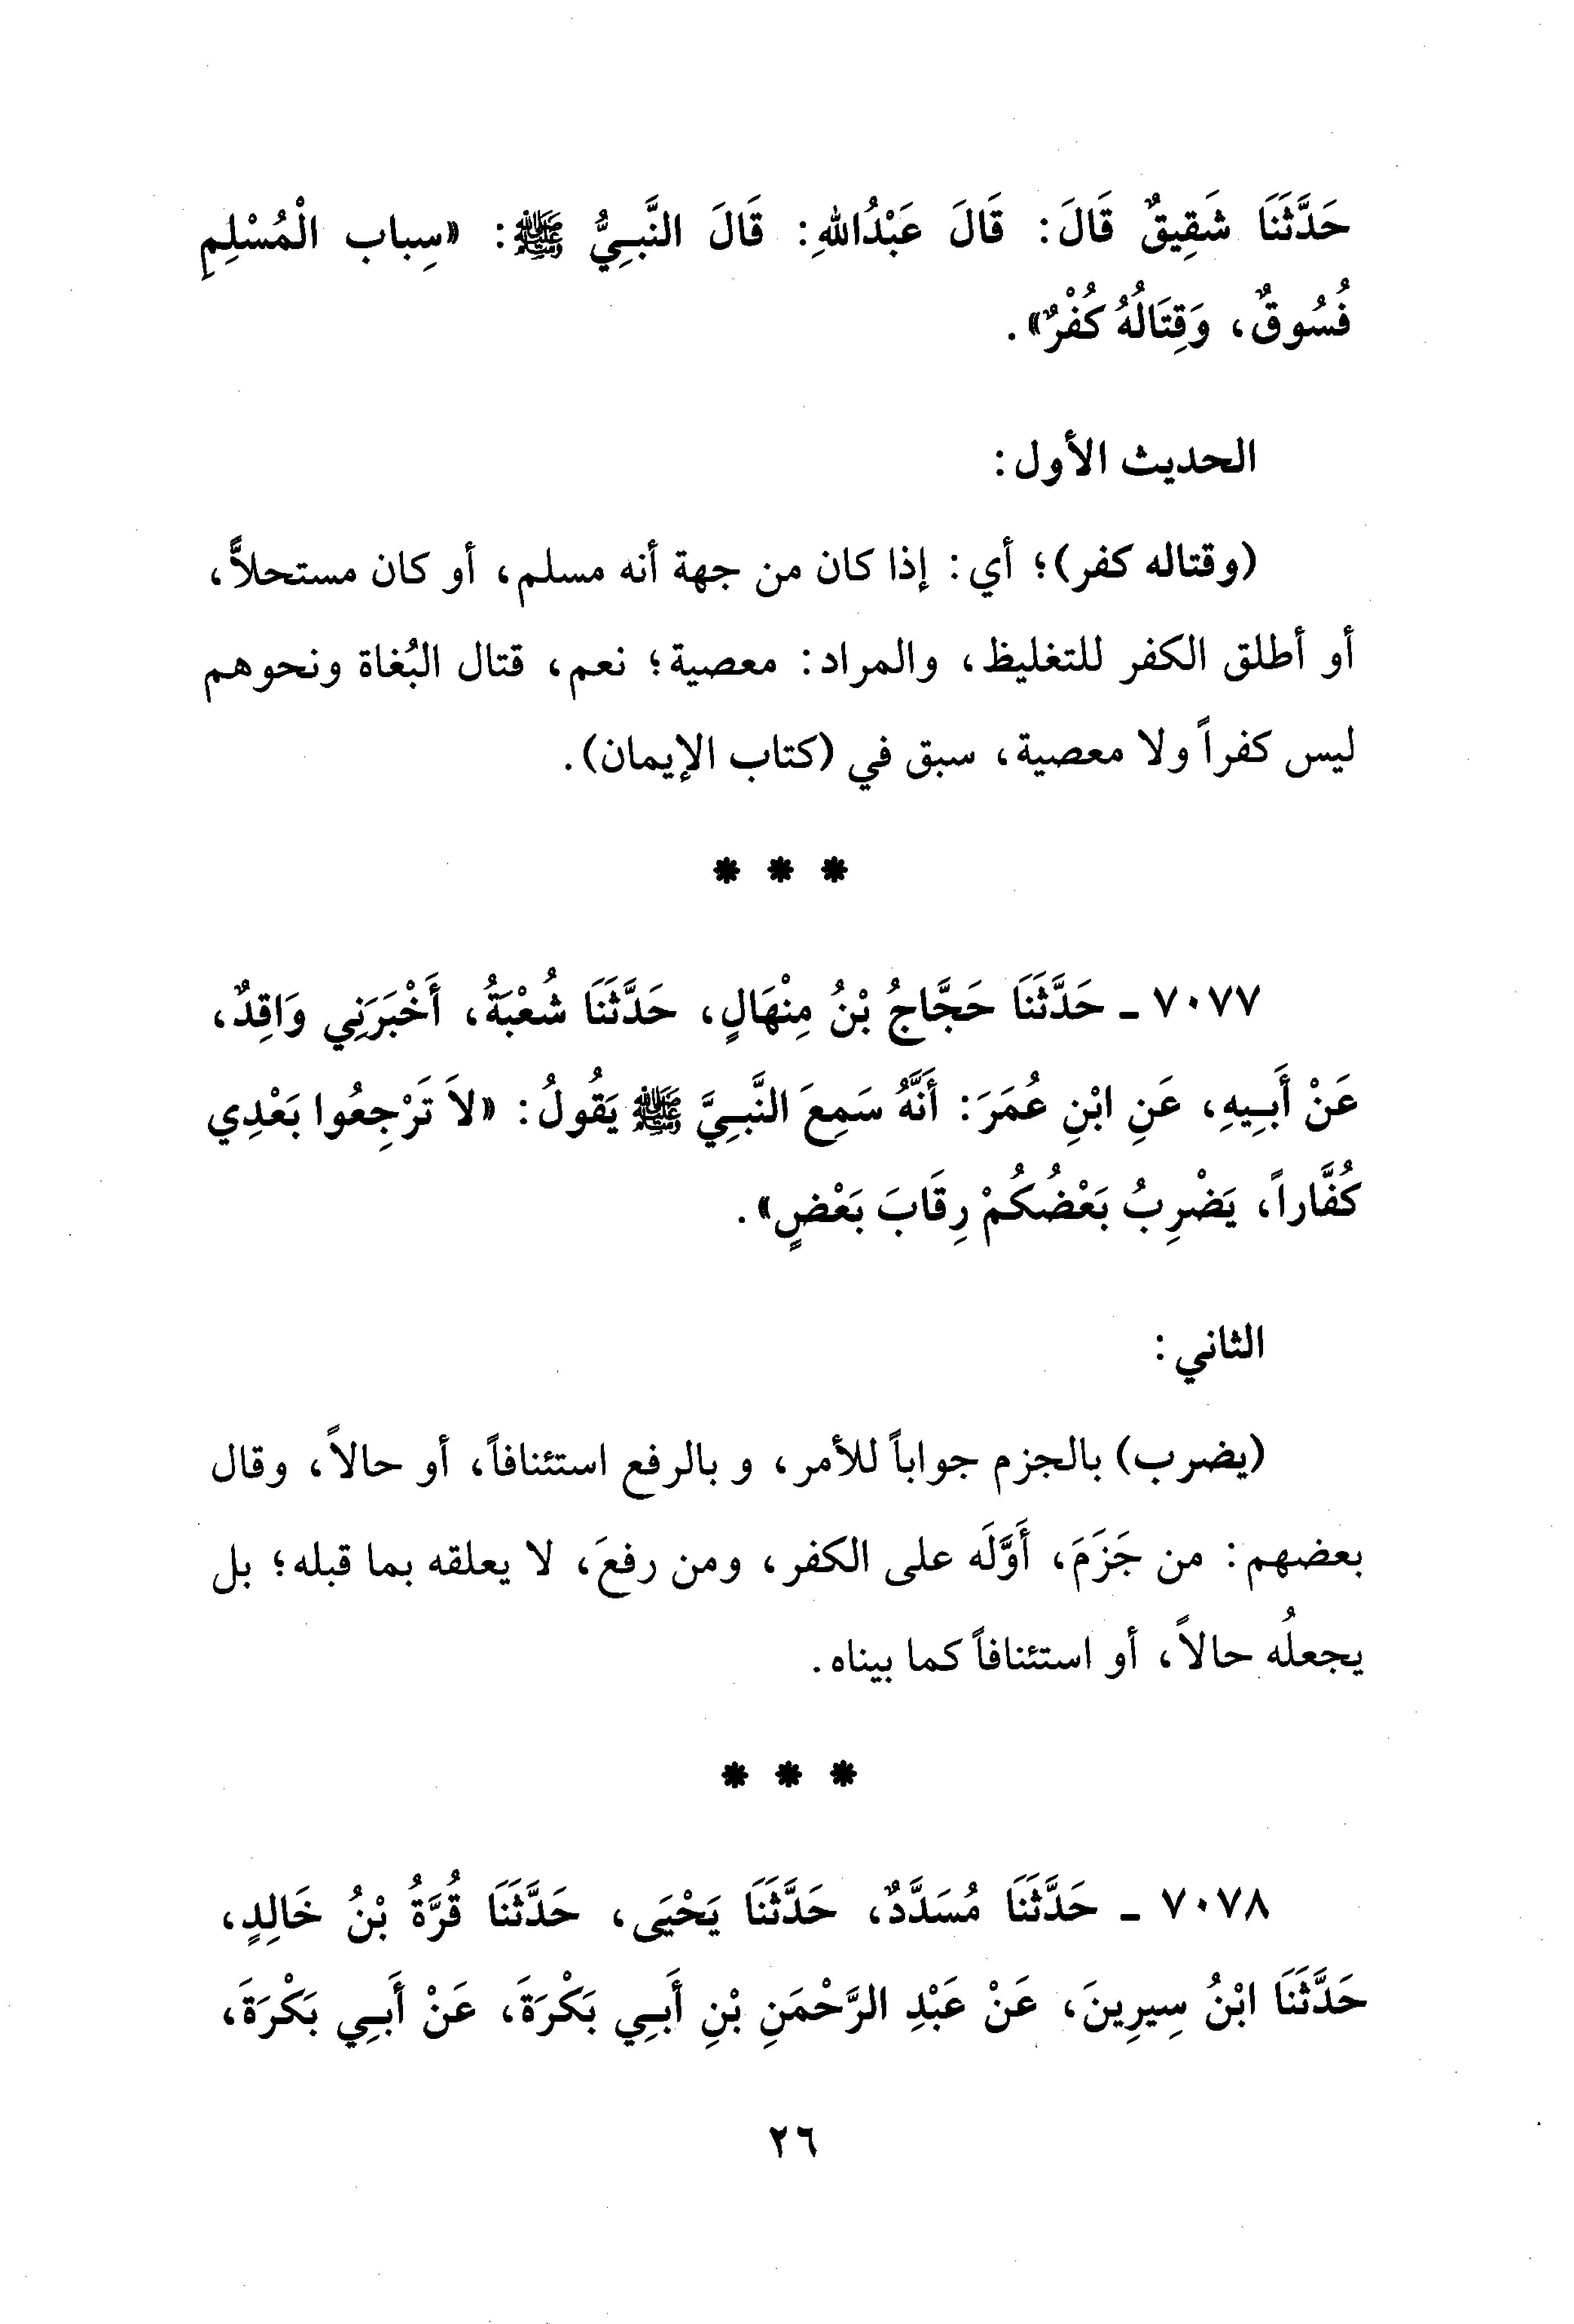 حَدَّثَنَا شَقِيقٌ قَالَ: قَالَ عَبْدُاللهِ: قَالَ النَّبِيُّ ﷺ: «سِباب الْمُسْلِمِ
فُسُوقٌ، وَقِتَالُهُ كُفْرٌ».
الحديث الأول:
(وقتاله كفر)؛ أي: إذا كان من جهة أنه مسلم، أو كان مستحلاًّ،
أو أطلق الكفر للتغليظ، والمراد: معصية؛ نعم، قتال البُغاة ونحوهم
ليس كفراً ولا معصية، سبق في (كتاب الإيمان).
* * *
٧٠٧٧ ـ حَدَّثَنَا حَجَّاجُ بْنُ مِنْهَالٍ، حَدَّثَنَا شُعْبَةُ، أَخْبَرَنِي وَاقِدٌ،
عَنْ أَبِيهِ، عَنِ ابْنِ عُمَرَ: أَنَّهُ سَمِعَ النَّبِيَّ ﷺ يَقُولُ: «لاَ تَرْجِعُوا بَعْدِي
كُفَّاراً، يَضْرِبُ بَعْضُكُمْ رِقَابَ بَعْضٍ».
الثاني:
(يضرب) بالجزم جواباً للأمر، و بالرفع استئنافاً، أو حالاً، وقال
بعضهم: من جَزَمَ، أَوَّلَه على الكفر، ومن رفعَ، لا يعلقه بما قبله؛ بل
يجعلُه حالاً، أو استئنافاً كما بيناه.
* * *
٧٠٧٨ ـ حَدَّثَنَا مُسَدَّدٌ، حَدَّثَنَا يَحْيَى، حَدَّثَنَا قُرَّةُ بْنُ خَالِدٍ،
حَدَّثَنَا ابْنُ سِيرِينَ، عَنْ عَبْدِ الرَّحْمَنِ بْنِ أَبِي بَكْرَةَ، عَنْ أَبِي بَكْرَةَ،
٢٦